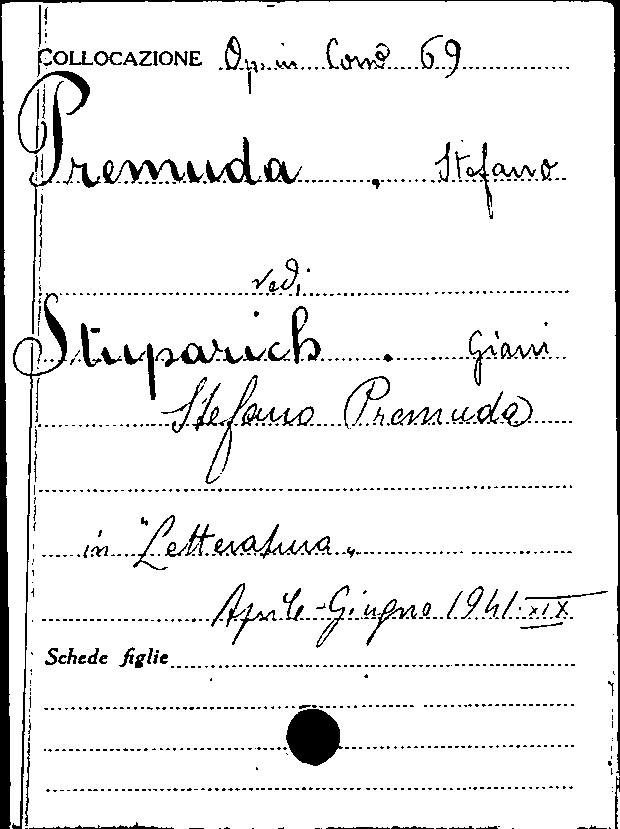 COLLOCAZIONE Op. in Cons 69
Premuda . Stefano
vedi
Stuparich . Giani
Stefano Premuda
in "Letteratura"
Aprile-Giugno 1941. XIX
Schede figlie